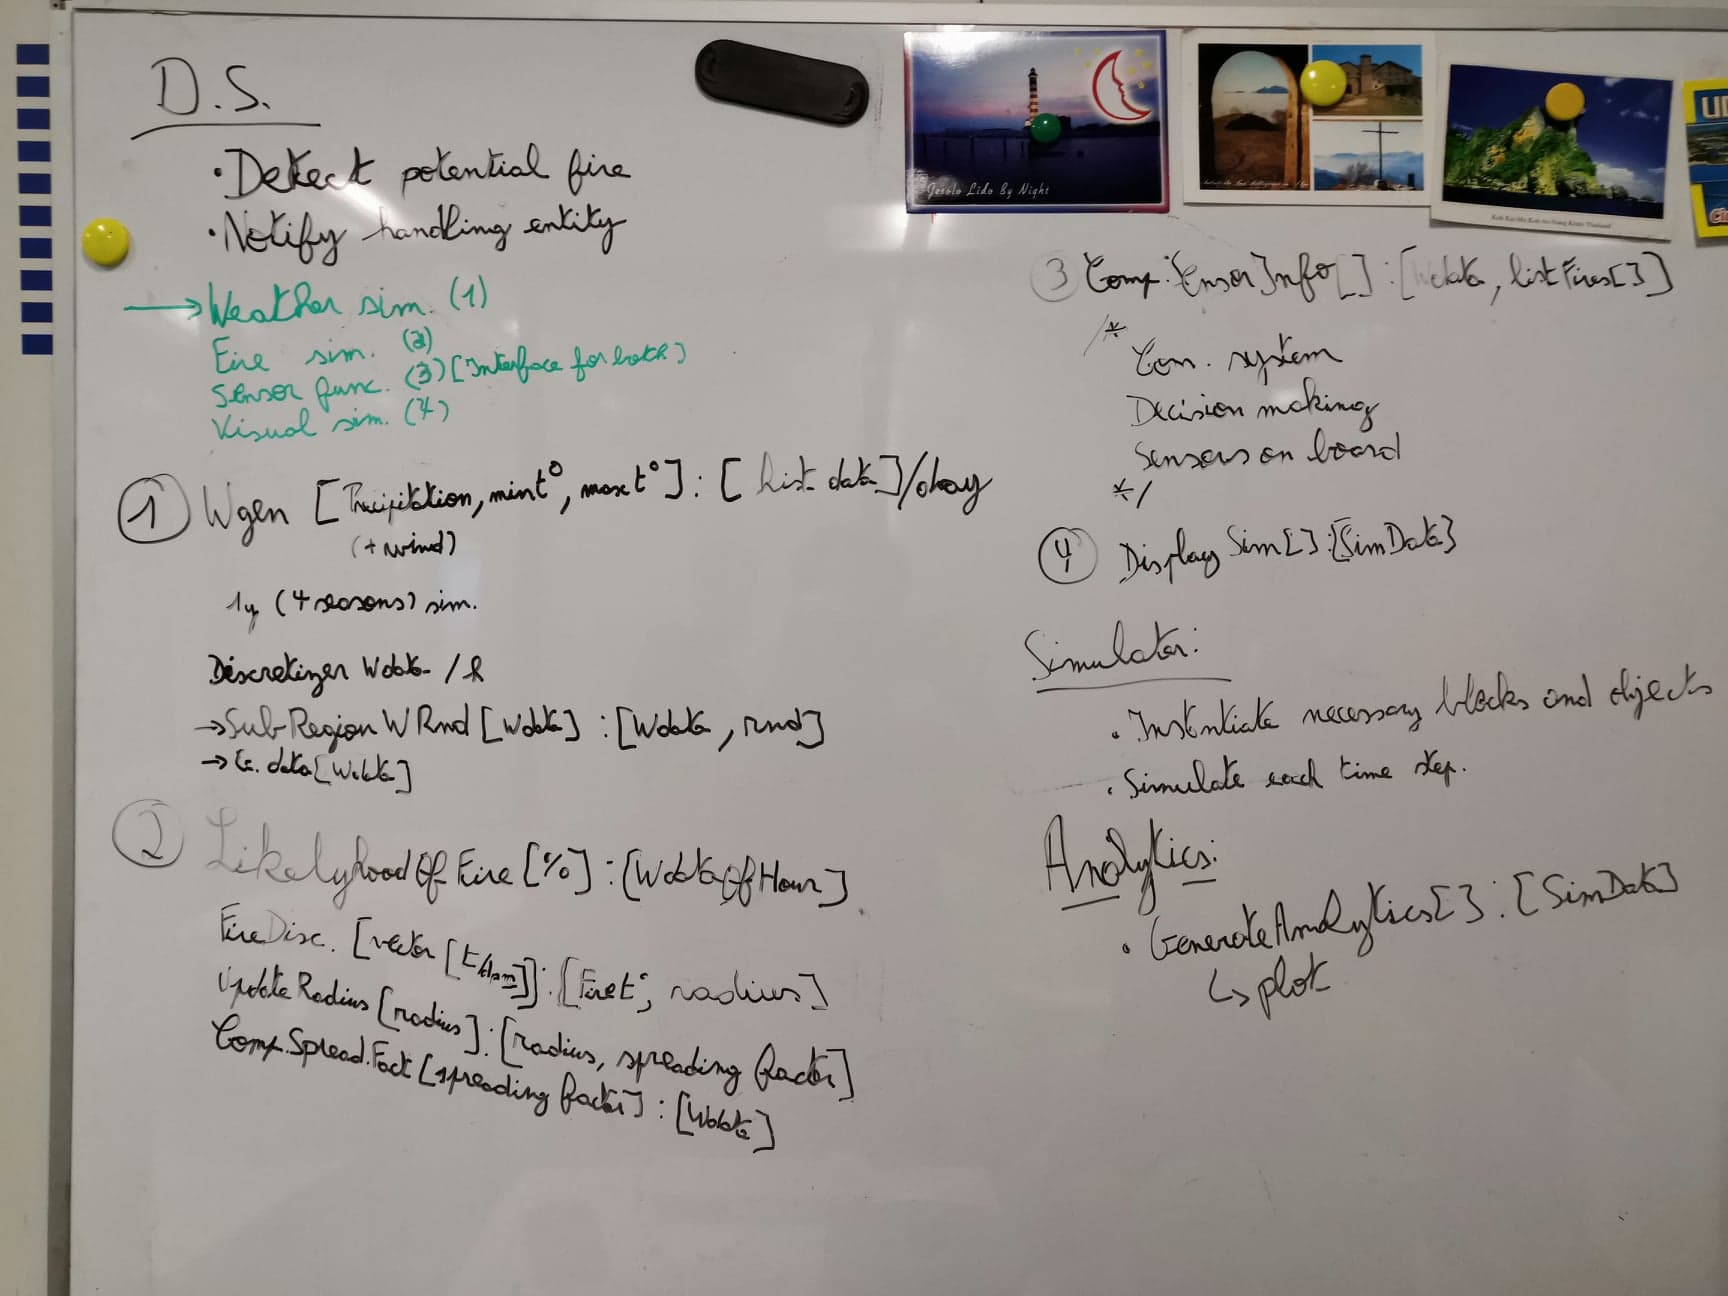 D.S.
• Detect potential fire
• Notify handling entity
→ Weather sim. (1)
Fire sim. (2)
Sensor func. (3) [Interface for both]
Visual sim. (4)
① Wgen [Precipitation, min t°, max t°] : [hist. data]/day
(+ wind)
1y (4 seasons) sim.
Discretizer Wdata /h
→ Sub-Region W Rnd [Wdata] : [Wdata, rnd]
data [Wdata]
② LikelyhoodOfFire [%] : [WdataOfHour]
FireDisc. [vector : [Fire t°, radius]
UpdateRadius [radius] : [radius, spreading factor]
Comp.Spread.Fact [spreading factor] : [Wdata]
Jesolo Lido By Night
③ Comp. SensorInfo [] : [Wdata, listFires[]]
/*
Com. system
Decision making
Sensors on board
*/
④ Display Sim [] : [SimData]
Simulator:
• Instantiate necessary blocks and objects
• Simulate each time step.
Analytics:
• GenerateAnalytics [] : [SimData]
↳ plot